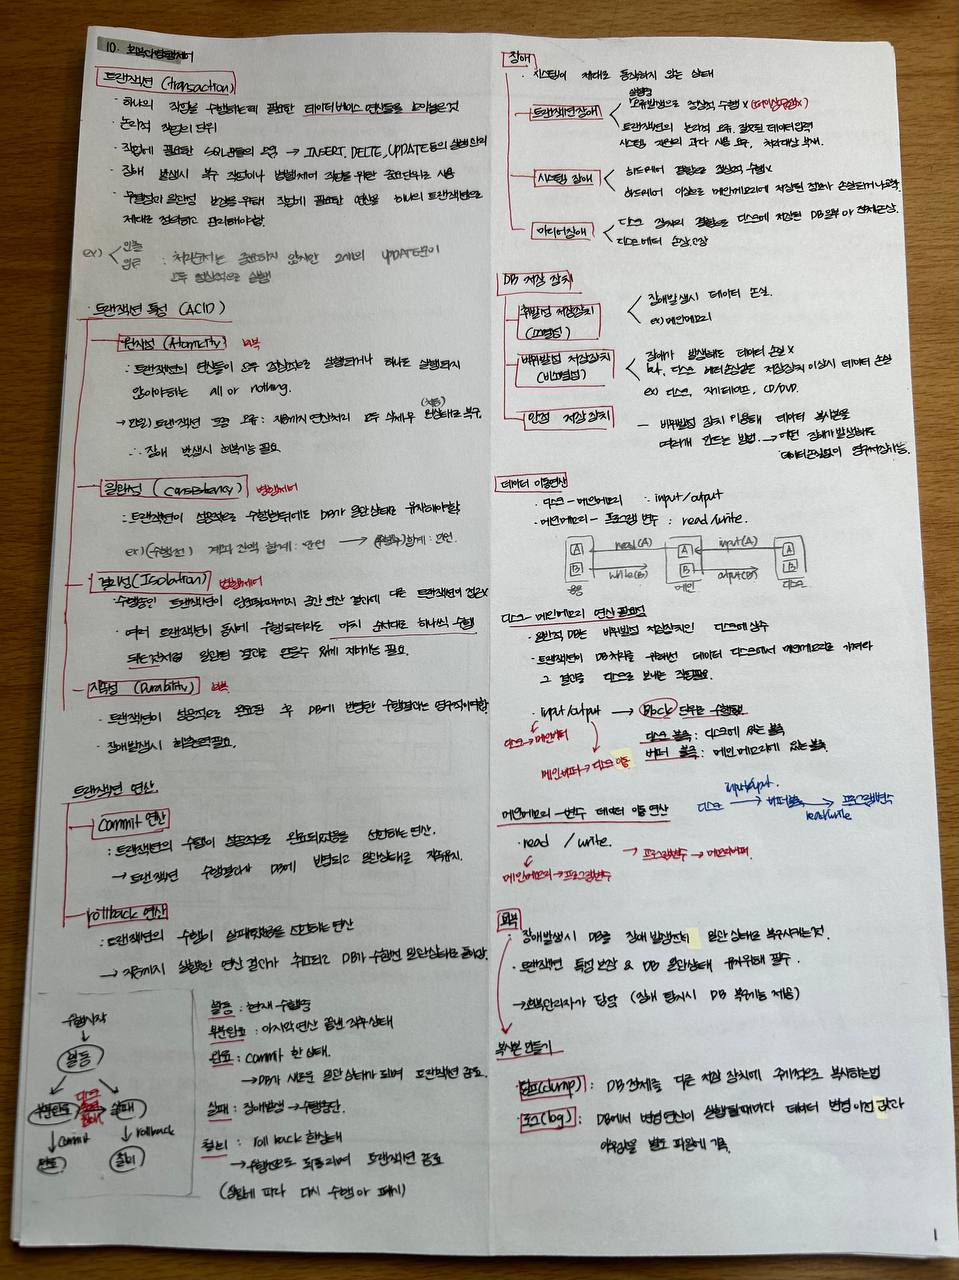 10. 회복과 병행제어
트랜잭션 (transaction)
· 하나의 작업을 수행하는데 필요한 데이터베이스 연산들을 모아놓은것
· 논리적 작업의 단위
· 작업에 필요한 SQL문들의 모임 → INSERT, DELTE, UPDATE 등의 실행 관리
· 장애 발생시 복구 작업이나 병행제어 작업을 위한 중요단위로 사용
· 무결성과 일관성 보장을 위해 작업에 필요한 연산을 하나의 트랜잭션으로
제대로 정의하고 관리해야함.
ex)
: 처리순서는 중요하지 않지만 2개의 UPDATE문이
모두 정상적으로 실행
트랜잭션 특성 (ACID)
원자성 (Atomicity) 회복
: 트랜잭션의 연산들이 모두 정상적으로 실행되거나 하나도 실행되지
않아야하는 all or nothing.
→ 만일 트랜잭션 도중 오류 : 지금까지 연산처리 모두 취소 원상태로 복구
∴ 장애 발생시 회복기능 필요
일관성 (Consistency) 병행제어
: 트랜잭션이 성공적으로 수행된뒤에도 DB가 일관상태로 유지해야함
ex) (수행전) 계좌 잔액 합계 : 만원 → (수행후) 합계 : 만원.
격리성 (Isolation) 병행제어
· 수행중인 트랜잭션이 완료될때까지 중간 연산 결과에 다른 트랜잭션이 접근X
· 여러 트랜잭션이 동시에 수행되더라도 마치 순서대로 하나씩 수행
되는것처럼 일관된 결과를 얻을수 있게 제어하는 필요.
지속성 (Durability) 회복
· 트랜잭션이 성공적으로 완료된 후 DB에 반영한 수행결과는 영구적이어야함
· 장애발생시 회복능력필요.
트랜잭션 연산
Commit 연산
: 트랜잭션의 수행이 성공적으로 완료되었음을 선언하는 연산.
→ 트랜잭션 수행결과가 DB에 반영되고 일관상태로 지속유지.
rollback 연산
: 트랜잭션의 수행이 실패했음을 선언하는 연산
→ 지금까지 실행한 연산 결과가 취소되고 DB가 수행전 일관상태로 돌아감.
수행시작
활동
부분완료 실패
commit rollback
완료 철회
활동 : 현재 수행중
부분완료 : 마지막 연산 끝낸 직후 상태
완료 : commit 한 상태.
→ DB가 새로운 일관 상태가 되며 트랜잭션 종료.
실패 : 장애발생 → 수행중단.
철회 : roll back 한 상태
→ 수행전으로 되돌리며 트랜잭션 종료
(상황에 따라 다시 수행 or 폐기)
장애
· 시스템이 제대로 동작하지 않는 상태
트랜잭션장애
오류발생으로 정상적 수행 X
트랜잭션의 논리적 오류, 잘못된 데이터입력
시스템 자원의 과다 사용 요구, 처리대상 부재.
시스템 장애
하드웨어 결함으로 정상적 수행X
하드웨어 이상으로 메인메모리에 저장된 정보가 손실되거나
미디어장애
디스크 장치의 결함으로 디스크에 저장된 DB 일부 or 전체손상.
디스크 헤더 손상, 고장
DB 저장 장치
휘발성 저장장치
(소멸성)
장애발생시 데이터 손실.
ex) 메인메모리
비휘발성 저장장치
(비소멸성)
장애가 발생해도 데이터 손실 X
but, 디스크 헤더손상같은 저장장치 이상시 데이터 손실
ex) 디스크, 자기테이프, CD/DVD.
안정 저장 장치
─ 비휘발성 장치 이용해 데이터 복사본을
여러개 만드는 방법. → 어떤 장애가 발생해도
데이터손실없이 영구저장가능.
데이터 이동연산
· 디스크 ─ 메인메모리 : input / output
· 메인메모리 ─ 프로그램 변수 : read / write.
A ← read(A) A ← input(A) A
B → write(B) B → output(B) B
응용 메인 디스크
디스크 ─ 메인메모리 연산 필요성
· 일반적 DB는 비휘발성 저장장치인 디스크에 상주
· 트랜잭션이 DB처리를 위해선 데이터 디스크에서 메인메모리로 가져와
그 결과를 디스크로 보내는 작업필요.
· input / output → Block 단위로 수행됨
디스크 → 메인버퍼
메인버퍼 → 디스크 이동
디스크 블록 : 디스크에 있는 블록
버퍼 블록 : 메인 메모리에 있는 블록.
input/output.
디스크 → 버퍼블록 → 프로그램변수
read/write
메인메모리 ─ 변수 데이터 이동 연산
· read / write.
→ 프로그램변수 → 메모리버퍼.
메인메모리 → 프로그램변수
회복
· 장애발생시 DB를 장애 발생전의 일관 상태로 복구시키는것.
· 트랜잭션 특성 보장 & DB 일관상태 유지위해 필수.
→ 회복관리자가 담당 (장애 탐지시 DB 복구기능 제공)
복사본 만들기
덤프(dump) : DB 전체를 다른 저장 장치에 주기적으로 복사하는법
로그(log) : DB에서 변경연산이 실행될때마다 데이터 변경 이전 값과
이후값을 별도 파일에 기록.
1